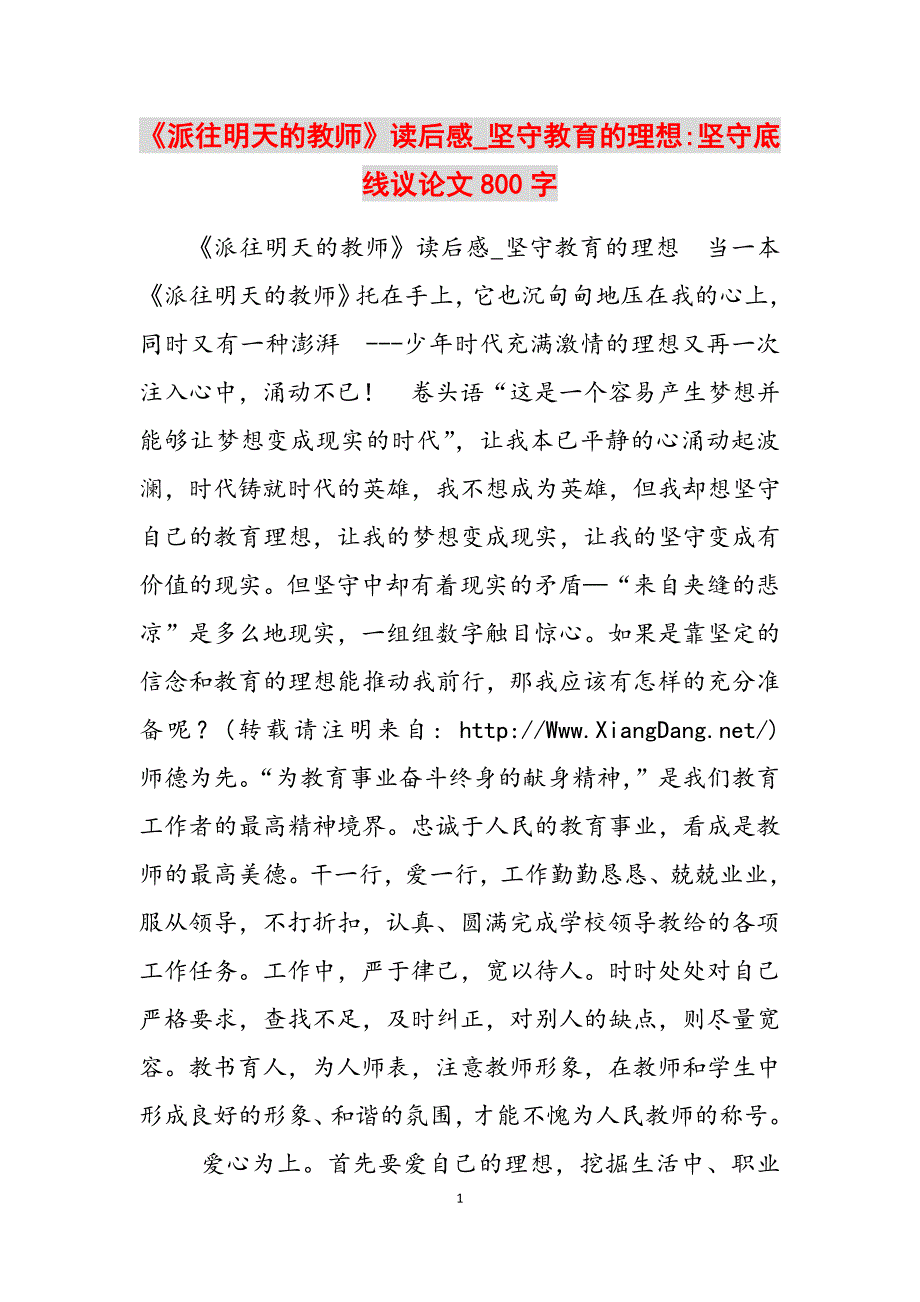 《派往明天的教师》读后感_坚守教育的理想:坚守底
线议论文 800 字
《派往明天的教师》读后感_坚守教育的理想　当一本
《派往明天的教师》托在手上，它也沉甸甸地压在我的心上，
同时又有一种澎湃　---少年时代充满激情的理想又再一次
注入心中，涌动不已！　卷头语“这是一个容易产生梦想并
能够让梦想变成现实的时代”，让我本已平静的心涌动起波
澜，时代铸就时代的英雄，我不想成为英雄，但我却想坚守
自己的教育理想，让我的梦想变成现实，让我的坚守变成有
价值的现实。但坚守中却有着现实的矛盾—“来自夹缝的悲
凉”是多么地现实，一组组数字触目惊心。如果是靠坚定的
信念和教育的理想能推动我前行，那我应该有怎样的充分准
备呢？(转载请注明来自: http://Www.XiangDang.net/)
师德为先。“为教育事业奋斗终身的献身精神，”是我们教育
工作者的最高精神境界。忠诚于人民的教育事业，看成是教
师的最高美德。干一行，爱一行，工作勤勤恳恳、兢兢业业，
服从领导，不打折扣，认真、圆满完成学校领导教给的各项
工作任务。工作中，严于律己，宽以待人。时时处处对自己
严格要求，查找不足，及时纠正，对别人的缺点，则尽量宽
容。教书育人，为人师表，注意教师形象，在教师和学生中
形成良好的形象、和谐的氛围，才能不愧为人民教师的称号。
爱心为上。首先要爱自己的理想，挖掘生活中、职业
1